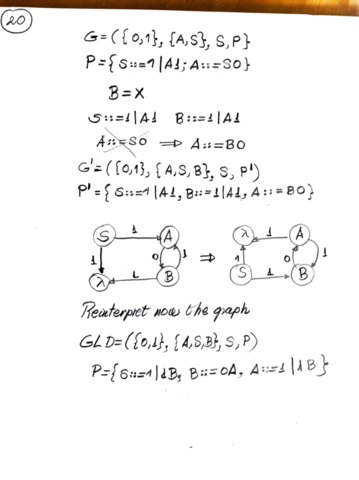 20
G=({0,1}, {A,S}, S, P}
P={S::=1|A1; A::=S0}
B=X
S::=1|A1 B::=1|A1
A::=S0 ⟹ A::=B0
G'=({0,1}, {A,S,B}, S, P')
P'={S::=1|A1, B::=1|A1, A::=B0}
S 1 A λ 1 A
1 0 1 ⇒ 1 0 1
λ 1 B S 1 B
Reinterpret now the graph
GLD=({0,1}, {A,S,B}, S, P)
P={S::=1|1B, B::=0A, A::=1|1B}